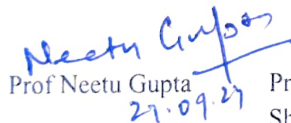 Neetu Gupta
Prof Neetu Gupta Pr
27.09.27
Sh